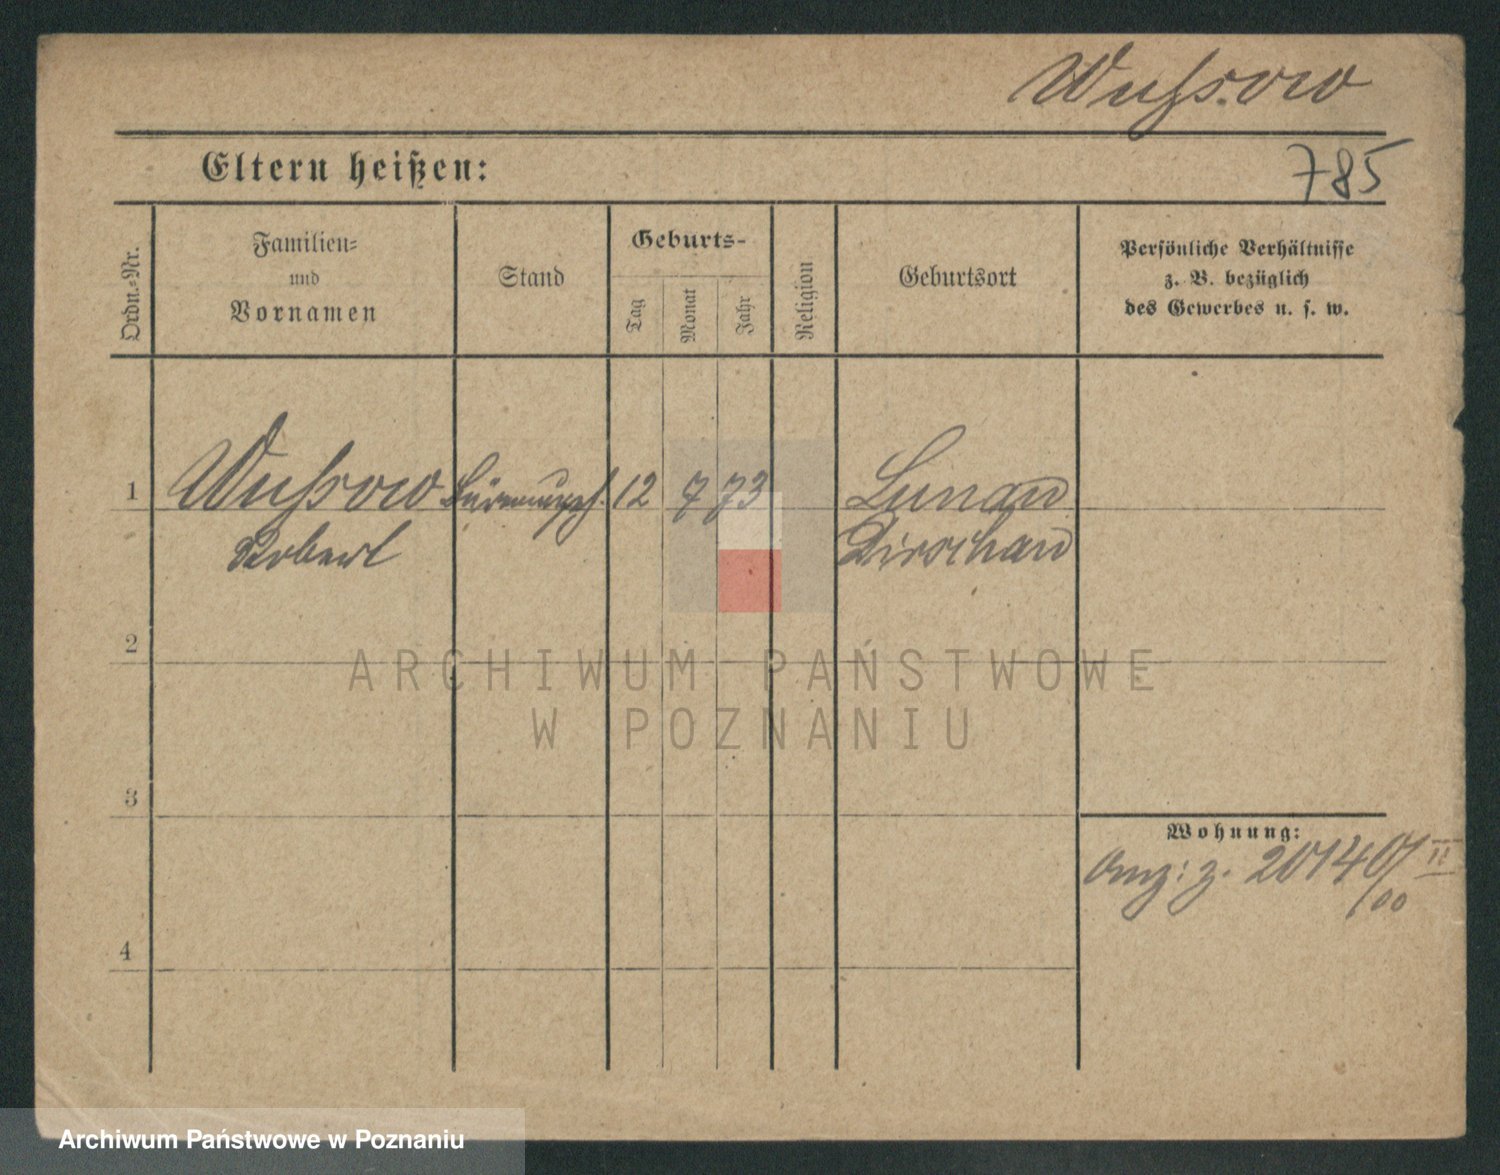 Wussow
785
Eltern heißen:
Ordn.-Nr.
Familien-
und
Vornamen
Stand
Geburts-
Tag
Monat
Jahr
Religion
Geburtsort
Persönliche Verhältnisse
z. B. bezüglich
des Gewerbes u. s. w.
1
Wussow
12
7
73
Lunau
Robert
Dirschau
2
ARCHIWUM PAŃSTWOWE
W POZNANIU
3
Wohnung:
z. 20140/II
/00
4
Archiwum Państwowe w Poznaniu